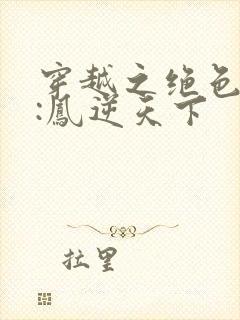 穿越之绝色
:鳳逆天下
拉里